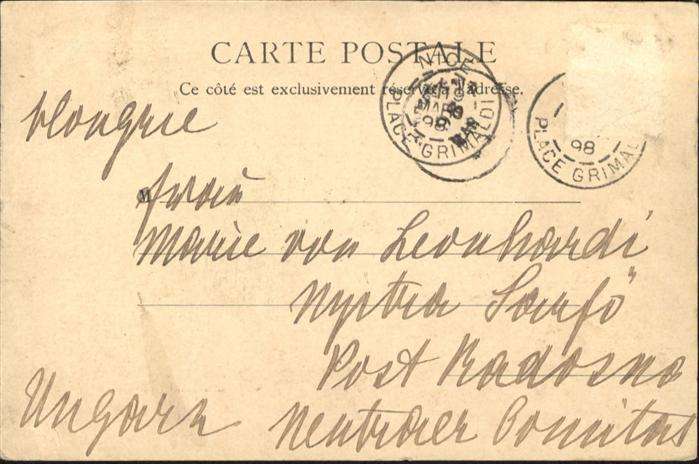 CARTE POSTALE
Ce côté est exclusivement réservé à l'adresse.
NICE
PLACE GRIMALDI
98
PLACE GRIMAL
98
Hongrie
M
Frau
Marie von Leonhardi
Nyitra
Post Radosna
Ungarn Neutraer Comitat